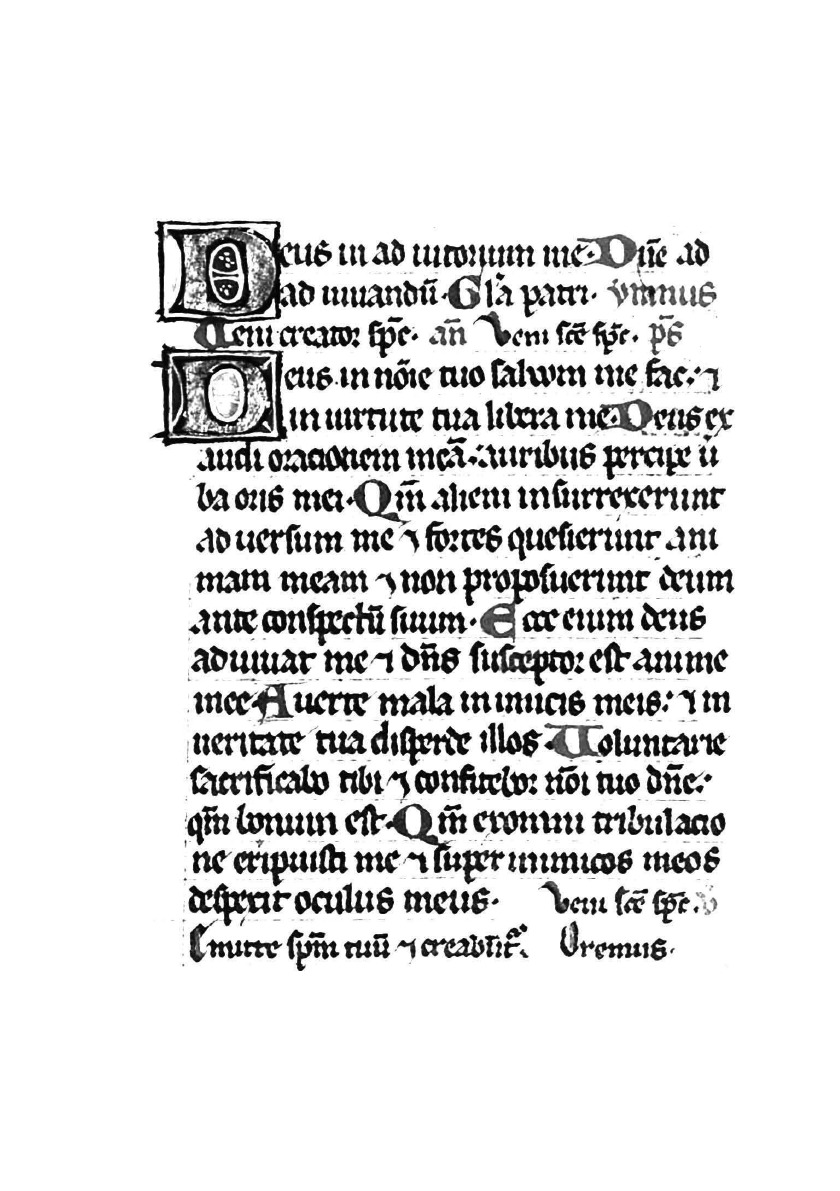 Deus in ad iutorium me. Dn̄e ad
ad iuuandū. Gl̄a patri. ymnus
Veni creator sp̄c. an̄ Veni scē sp̄c. p̄s
Deus in nōīe tuo saluum me fac: ⁊
in uirtute tua libera me. Deus ex
audi orationem meā: auribus percipe ū
ba oris mei. Qm̄ alieni insurrexerunt
ad uersum me ⁊ fortes quesierunt ani
mam meam ⁊ non proposuerunt deum
ante conspectū suum. Ecce enim deus
adiuuat me ⁊ dn̄s susceptor est anime
mee. Auerte mala in imicis meis: ⁊ in
ueritate tua disperde illos. Voluntarie
sacrificabo tibi ⁊ confitebor nōi tuo dn̄e:
qm̄ bonum est. Qm̄ exomni tribulacio
ne eripuisti me ⁊ super inimicos meos
despexit oculus meus. Veni scē sp̄c. v
Emitte sp̄m tuū ⁊ creabūtᵃ. Oremus.